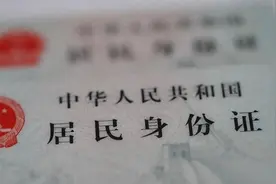 中华人民共和国
居民身份证